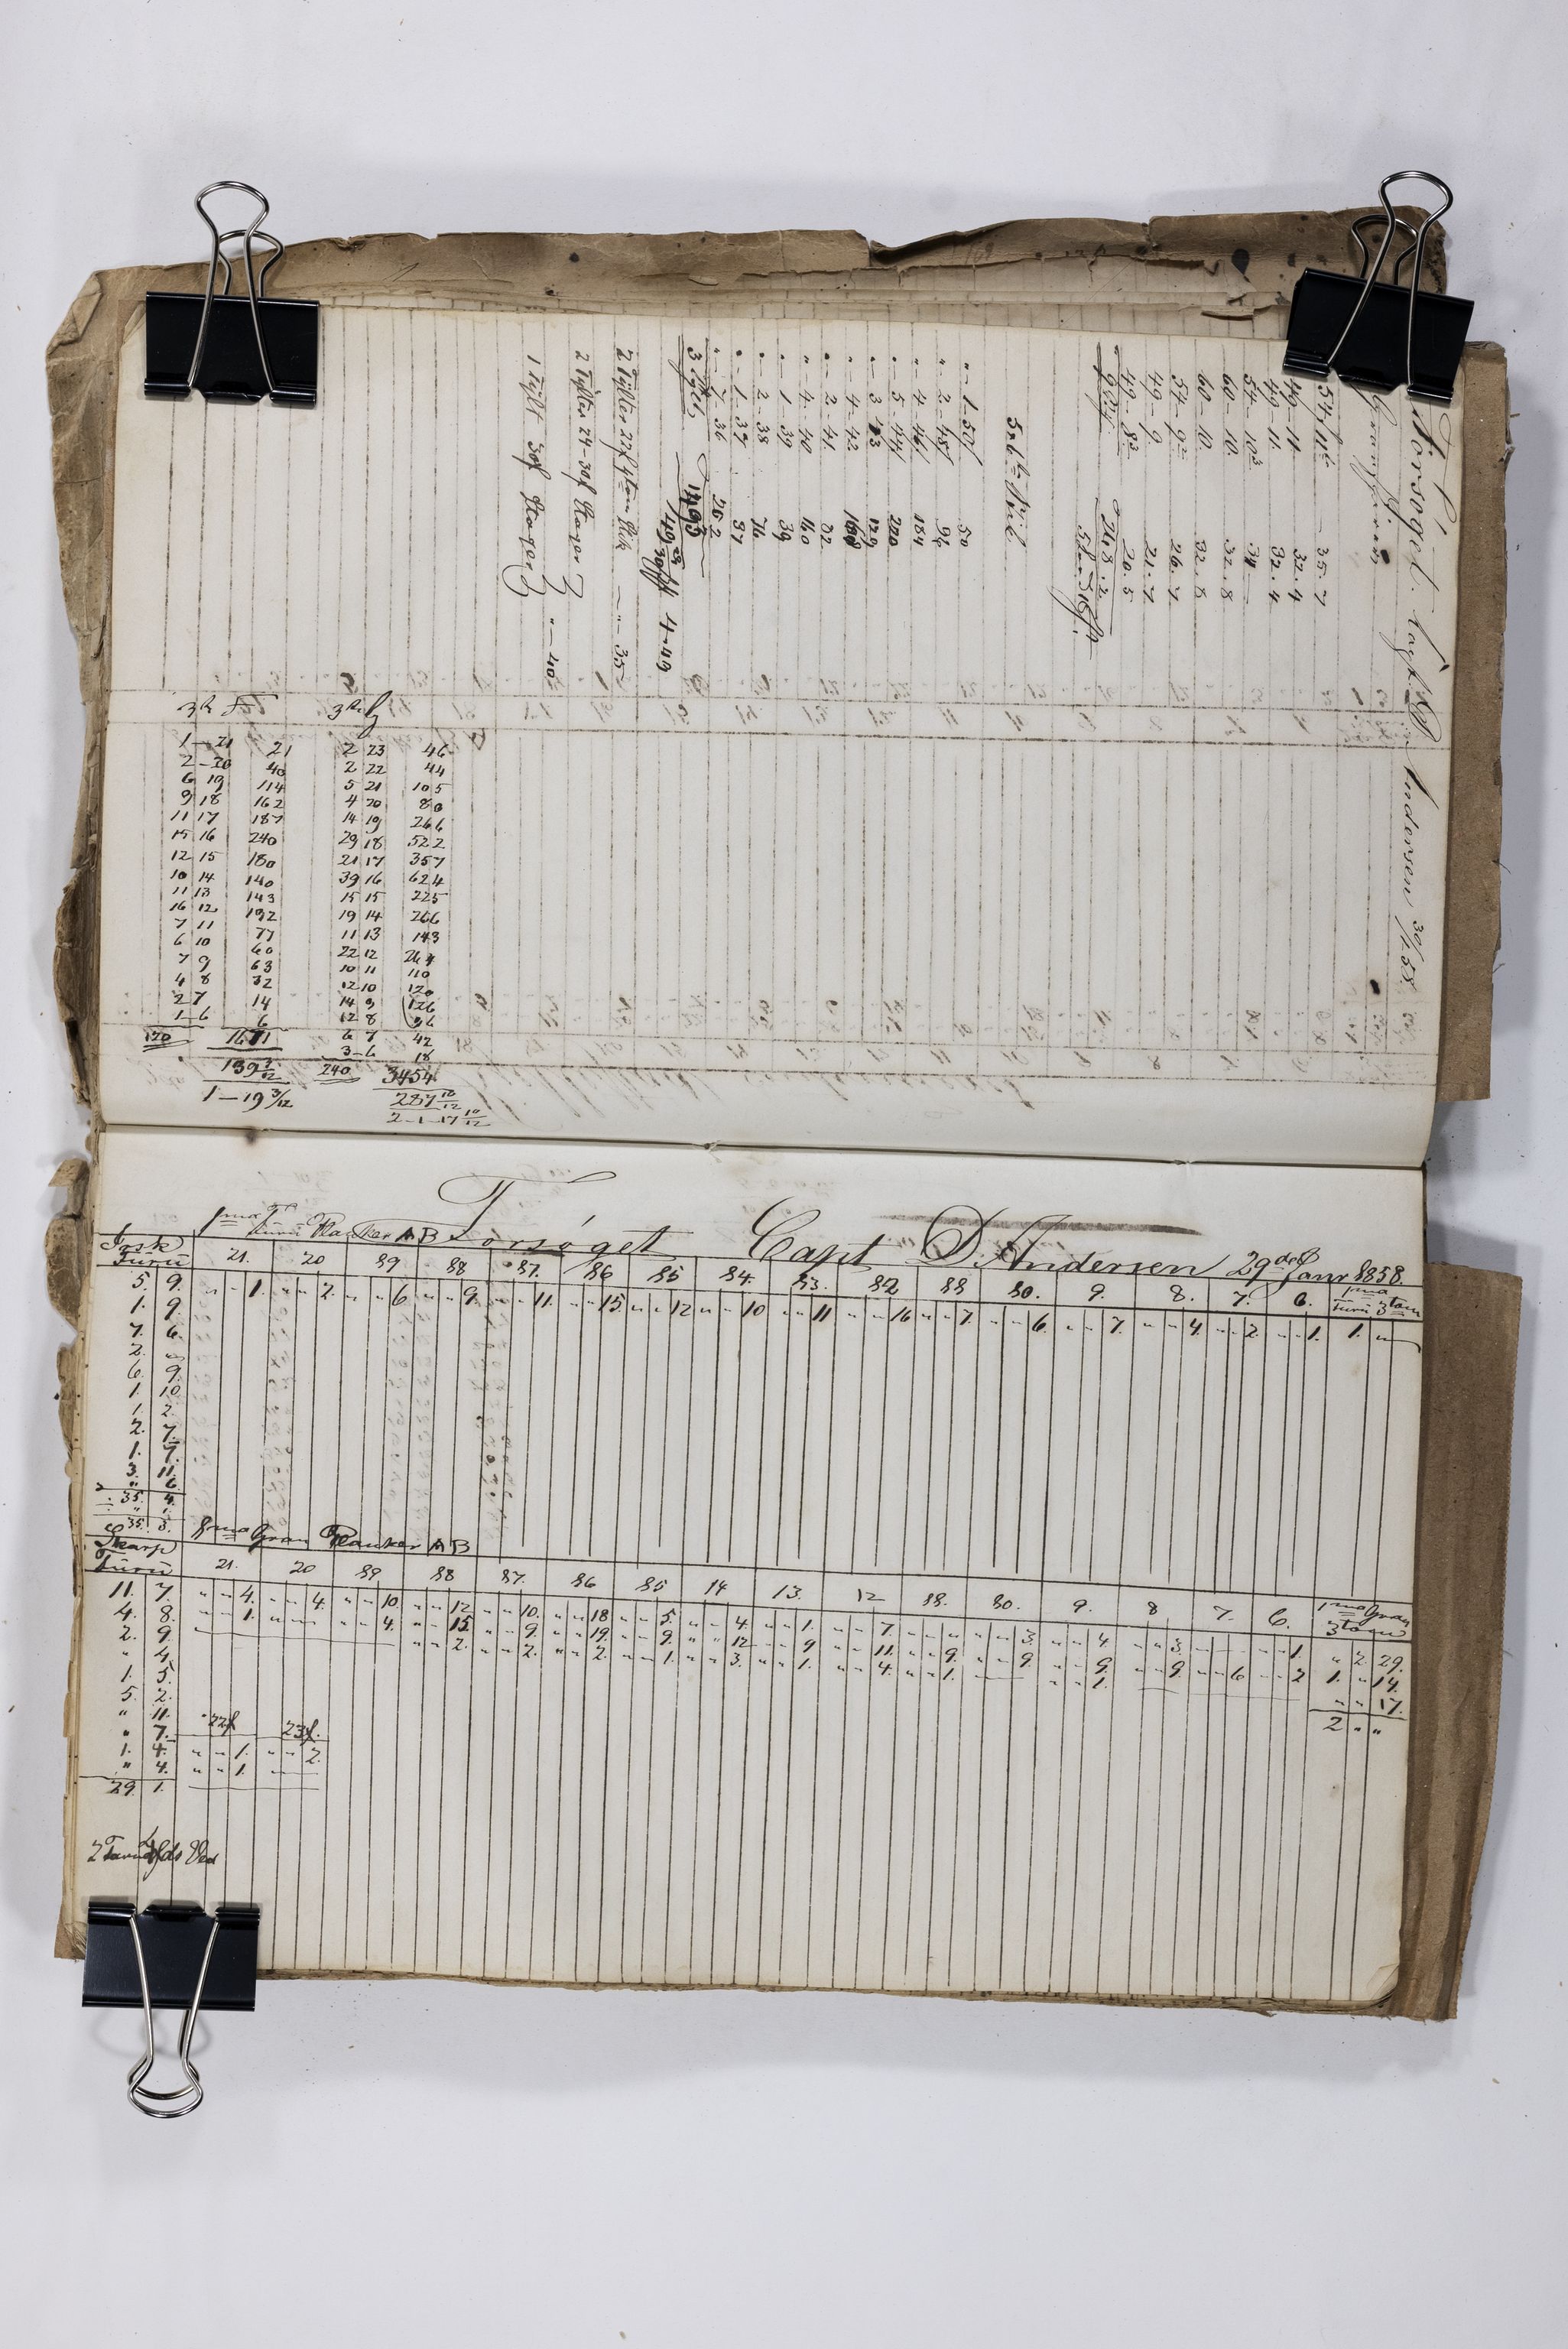 Forsøget. Capt. D. Andersen 30/1 58
54 f 11 — 35.7
49-11 32.4
49-11. 32.4
54-10 34 —
60-10. 32.8
60-10. 32.8
54-9 26.7
49-9. 21.7
49-8 20.5
"-1-50 50
"-2-48
"-4-46 184
"-5-44
"-3-43 129
"-4-42 168
"-2-41. 82
"-4-40 160
"-1-39 39
"-2-38 76
"-1-37 37
"-7-36 252
2 Tylter 24-30f Stager
1 Tylt 30f Stager "-40
1-21 21
2-20 40
6 19 114
9 18 162
11 17 187
15 16 240
12 15 180
10 14 140
11 13 143
16 12 192
7 11 77
6 10 60
7 9 63
4 8 32
2 7 14
1-6 6
170 1671
139 3/12
1-19 3/12
2 23 46
2 22 44
5 21 105
4 20 80
14 19 266
29 18 522
21 17 357
39 16 624
15 15 225
19 14 266
11 13 143
22 12 264
10 11 110
12 10 120
14 9 126
12 8 96
6 7 42
3-6 18
240 3454
287 10/12
2-1-17 10/12
Forsøget Capt D. Andersen 29de Janr 1858.
1ma Furu Planker AB
Furu 21. 20 19 18 17. 16 15 14. 13. 12 11 10. 9. 8. 7. 6. 1ma Furu 3tom
5. 9. " " 1. " " 2. " " 6. " " 9. " " 11. " " 15 " " 12 " " 10 " " 11 " " 16 " " 7. " " 6. " " 7. " " 4. " " 2. " " 1. 1. "
1. 9.
7. 6.
2. "
6. 9.
1. 10
1. 2.
2. 7.
1. 7.
3. 11.
" 6
35. 4.
" 1.
35. 3.
1ma Gran Planker AB
Skarp Furu 21. 20 19 18 17. 16 15 14 13. 12 11. 10. 9. 8 7. 6. 1ma Gran 3tom
11. 7. " " 4. " " 4. " " 10. " " 12 " " 10. " " 18 " " 5. " " 4. " " 1. " " 7. " " " " " 3. " " 4. " " 3. " " 1. " 2. 29.
4. 8. " " 1. " " " " " 4. " " 15. " " 9. " " 19. " " 9. " " 12 " " 9 " " 11. " " 9. " " 9. " " 9. " " 9. " " 6 " " 2 1. " 14.
2. 9. " " 2. " " 2. " " 2. " " 1. " " 3. " " 1. " " 4. " " 1. " " 1. " " 17.
" 4. 2 " "
1. 5.
5. 2.
" 11. 22f 23f.
" 7. " " 1. " " 2.
1. 4. " " 1.
" 4.
29. 1.